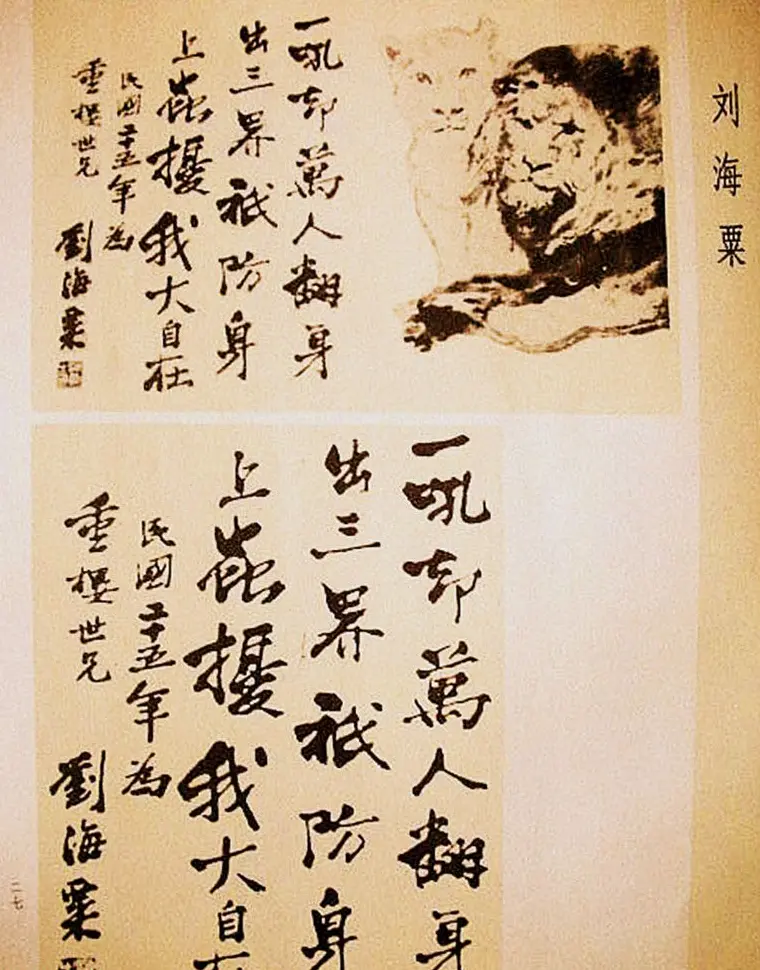 刘海粟
一吼却萬人翻身
出三界祇防身
上蝨擾我大自在
民國二十五年為
重樓世兄
劉海粟
一吼却萬人翻身
出三界祇防身
上蝨擾我大自在
民國二十五年為
重樓世兄
劉海粟
二七